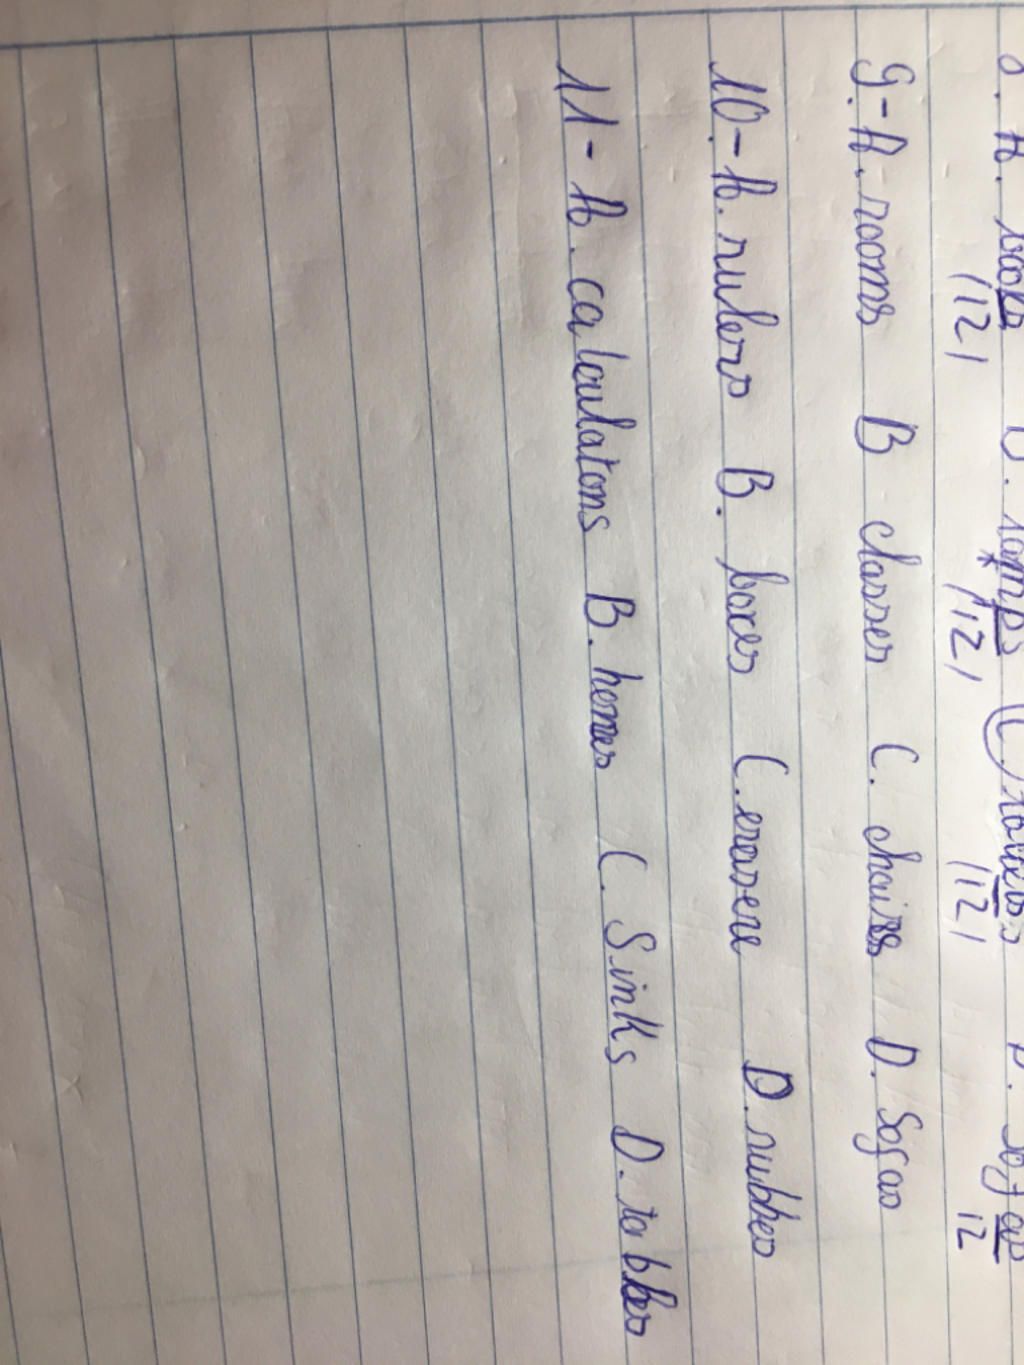 A. books B. lamps C. towers D. sofas
/12/ /12/ /12/ 12
9.- A. rooms B classes C. chairs D. Sofas
10.- A. rulers B. boxes C. erasere D. rubbes
11- A. calculatons B. homes C. Sinks D. tables